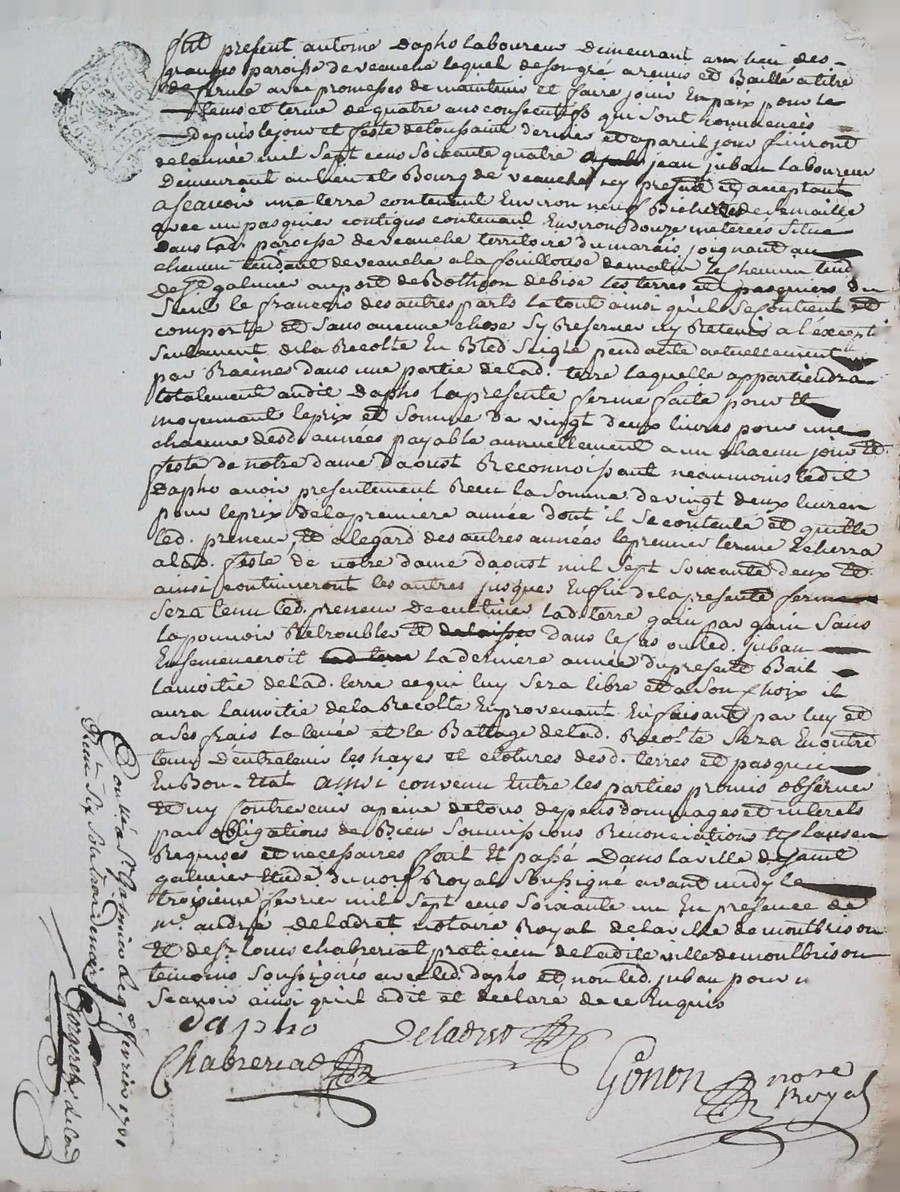 fut present antoine Dapho laboureur demeurant au lieu des
granges paroisse de veauche lequel de son gré a remis et Baille a titre
de ferme avec promesses de maintenir et faire jouir En paix pour le
tems et terme de quatre ans consecutifs qui sont commencés
depuis le jour et feste de toussaint dernier et a pareil jour finiront
de l'année mil sept cens soixante quatre a jean juban laboureur
Demeurant au lieu et Bourg de veauche icy present et acceptant
a scavoir une terre contenant Environ neuf Bichettes de semaille
avec un pasquier contigus contenant Environ douze meterées situé
dans lad. paroisse de veauche territoire du marais joignant au
chemin tendant de veauche a la fouillouse de matin le chemin tend.
de st galmier au port de Botheon de bise les terres et pasquiers du
sieur le francois des autres parts le tout ainsi qu'il se contient et
comporte et sans aucune chose sy Reserver ny Retenir a l'except.
seulement de la Recolte En Bled seigle pendante actuellement
par Racines dans une partie de lad. terre laquelle appartiendra
totalement audit Dapho la presente ferme faite pour et
moyennant le prix et somme de vingt deux livres pour une
chacune desd. années payable annuellement a un chacun jour et
feste de notre dame daoust Reconnoissant neanmoins ledit
Dapho avoir presentement Receu la somme de vingt deux livres
pour le prix de la premiere année dont il se contente et quitte
led. preneur et a legard des autres années le premier terme Echerra
a lad. feste de notre dame daoust mil sept soixante deux et
ainsi continueront les autres jusques Enfin de la presente ferme
sera tenu led. preneur de cultiver lad. terre gain par gain sans
la pouvoir Retroubler et dans le cas ou led. juban
Ensemenceroit la derniere année du present Bail
la moitié de lad. terre ce qui luy sera libre et a son choix il
aura la moitié de la Recolte En provenant En faisant par luy et
a ses frais la levée et le Battage de lad. Recolte sera En outre
tenu d'entretenir les hayes et clotures desd. terres et pasquier
En Bon Etat ainsi convenu Entre les parties promis observer
et ny contrevenir a peine de tous depens dommages et interets
par obligations de Bien soumissions Renonciations et clauses
Requises et necessaires fait et passé Dans la ville de saint
galmier Etude du nore Royal soussigné avant midy le
troisieme fevrier mil sept cens soixante un En presence de
me. andré deladret notaire Royal de la ville de montbrison
et de sr. louis chabreriat praticien de ladite ville de montbrison
temoins soussignés avec led. dapho et non led. juban pour n
scavoir ainsi qu'il a dit et declaré de ce Enquis
dapho
Deladret
Chabreriat
Gonon nore
Royal
Controllé a St Galmier le 8 fevrier 1761